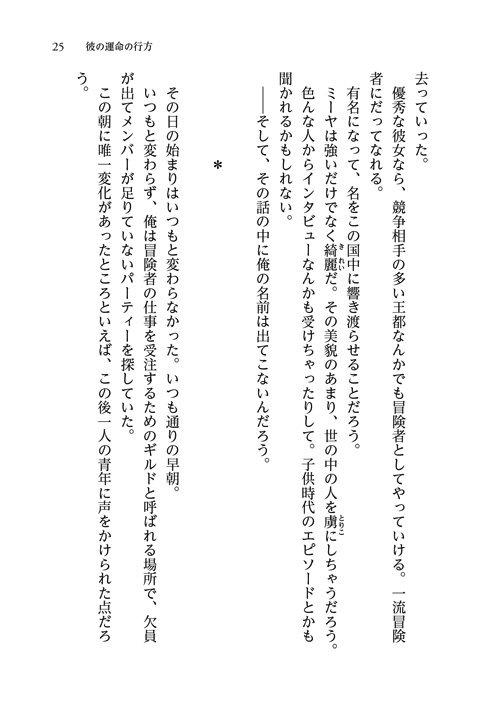 25　彼の運命の行方
去っていった。
　優秀な彼女なら、競争相手の多い王都なんかでも冒険者としてやっていける。一流冒険
者にだってなれる。
　有名になって、名をこの国中に響き渡らせることだろう。
　ミーヤは強いだけでなく綺麗だ。その美貌のあまり、世の中の人を虜にしちゃうだろう。
色んな人からインタビューなんかも受けちゃったりして。子供時代のエピソードとかも
聞かれるかもしれない。
　――そして、その話の中に俺の名前は出てこないんだろう。
＊
　その日の始まりはいつもと変わらなかった。いつも通りの早朝。
　いつもと変わらず、俺は冒険者の仕事を受注するためのギルドと呼ばれる場所で、欠員
が出てメンバーが足りていないパーティーを探していた。
　この朝に唯一変化があったところといえば、この後一人の青年に声をかけられた点だろ
う。